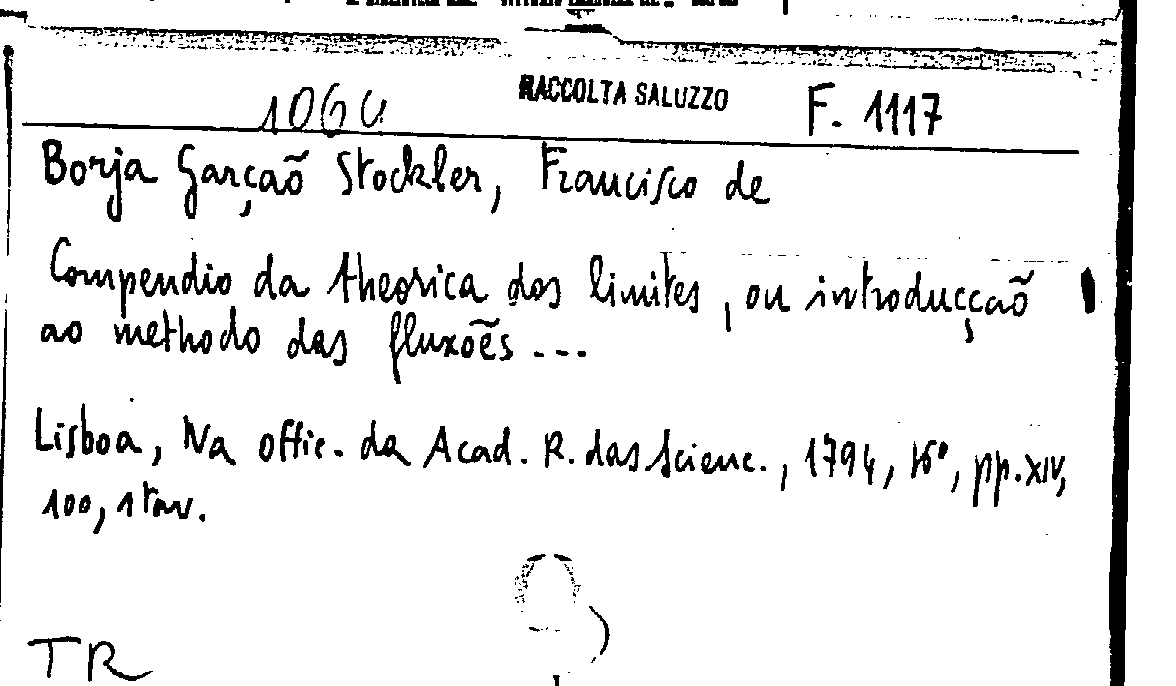 RACCOLTA SALUZZO F. 1117
Borja Garçaõ Stockler, Francisco de
Compendio da theorica dos limites, ou introducçaõ
ao methodo das fluxoẽs ...
Lisboa, Na offic. da Acad. R. das Scienc., 1794, 16º, pp. XIV,
100, 1 tav.
TR